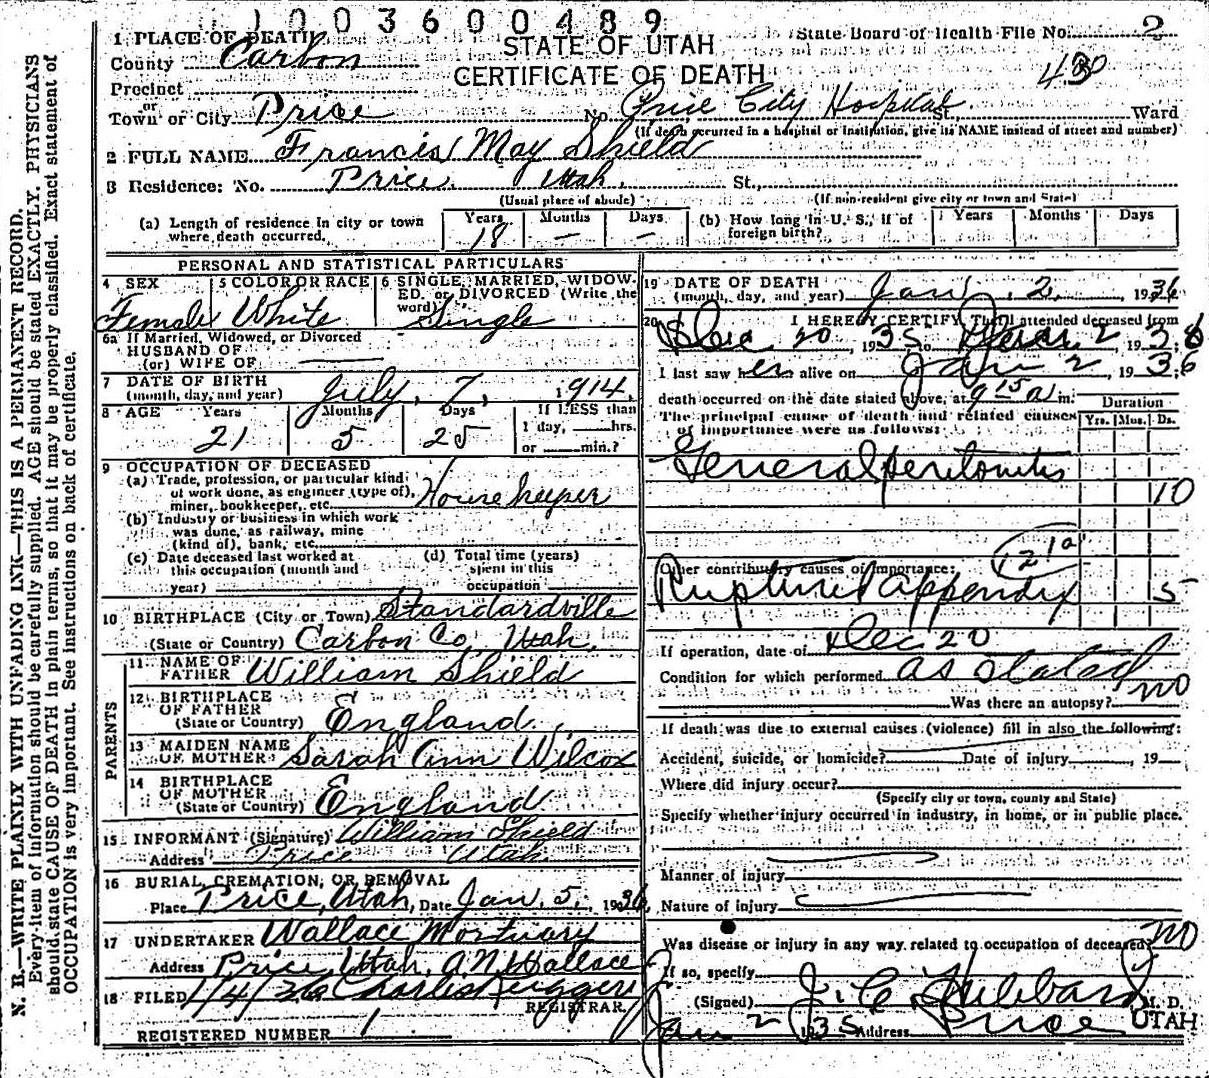 1003600489
1 PLACE OF DEATH
STATE OF UTAH
State Board of Health File No. 2
County Carbon
CERTIFICATE OF DEATH
430
Precinct
or
Town or City Price No. Price City Hospital St., Ward
(If death occurred in a hospital or institution, give its NAME instead of street and number)
2 FULL NAME Francis May Shield
3 Residence: No. Price, Utah. St.,
(Usual place of abode) (If non-resident give city or town and State)
(a) Length of residence in city or town where death occurred. Years 18 Months — Days — (b) How long in U. S., if of foreign birth? Years Months Days
PERSONAL AND STATISTICAL PARTICULARS
4 SEX Female
5 COLOR OR RACE White
6 SINGLE, MARRIED, WIDOWED, or DIVORCED (Write the word) Single
6a If Married, Widowed, or Divorced
HUSBAND OF
(or) WIFE OF
7 DATE OF BIRTH
(month, day, and year) July, 7, 1914.
8 AGE Years 21 Months 5 Days 25 If LESS than 1 day, ___hrs. or ___min.?
9 OCCUPATION OF DECEASED
(a) Trade, profession, or particular kind of work done, as engineer (type of), miner, bookkeeper, etc. House keeper
(b) Industry or business in which work was done, as railway, mine (kind of), bank, etc.
(c) Date deceased last worked at this occupation (month and year)
(d) Total time (years) spent in this occupation
10 BIRTHPLACE (City or Town) Standardville
(State or Country) Carbon Co, Utah.
PARENTS
11 NAME OF FATHER William Shield
12 BIRTHPLACE OF FATHER
(State or Country) England.
13 MAIDEN NAME OF MOTHER Sarah Ann Wilcox
14 BIRTHPLACE OF MOTHER
(State or Country) England
15 INFORMANT (Signature) William Shield
Address Price Utah.
16 BURIAL, CREMATION, OR REMOVAL
Place Price, Utah, Date Jan. 5, 1936
17 UNDERTAKER Wallace Mortuary
Address Price, Utah, J.N. Wallace
18 FILED 1/4/36 Charles
REGISTRAR.
REGISTERED NUMBER 1
19 DATE OF DEATH
(month, day, and year) Jan. 2, 1936
20 I HEREBY CERTIFY, That I attended deceased from
Dec 20, 1935, to Jan 2 193
I last saw her alive on Jan 2 1936
death occurred on the date stated above, at 9 15 a m.
The principal cause of death and related causes of importance were as follows:
Duration
Yrs. Mos. Ds.
General peritonitis
10
121a
Other contributory causes of importance:
Ruptured appendix 5
If operation, date of Dec 20
Condition for which performed as stated
Was there an autopsy? no
If death was due to external causes (violence) fill in also the following:
Accident, suicide, or homicide? Date of injury , 19
Where did injury occur?
(Specify city or town, county and State)
Specify whether injury occurred in industry, in home, or in public place.
Manner of injury
Nature of injury
Was disease or injury in any way related to occupation of deceased? no
If so, specify
(Signed) J. C. Hubbard M. D.
Jan 2 1935 Address Price UTAH
N. B.—WRITE PLAINLY WITH UNFADING INK—THIS IS A PERMANENT RECORD.
Every item of information should be carefully supplied. AGE should be stated EXACTLY. PHYSICIANS
should state CAUSE OF DEATH in plain terms, so that it may be properly classified. Exact statement of
OCCUPATION is very important. See instructions on back of certificate.